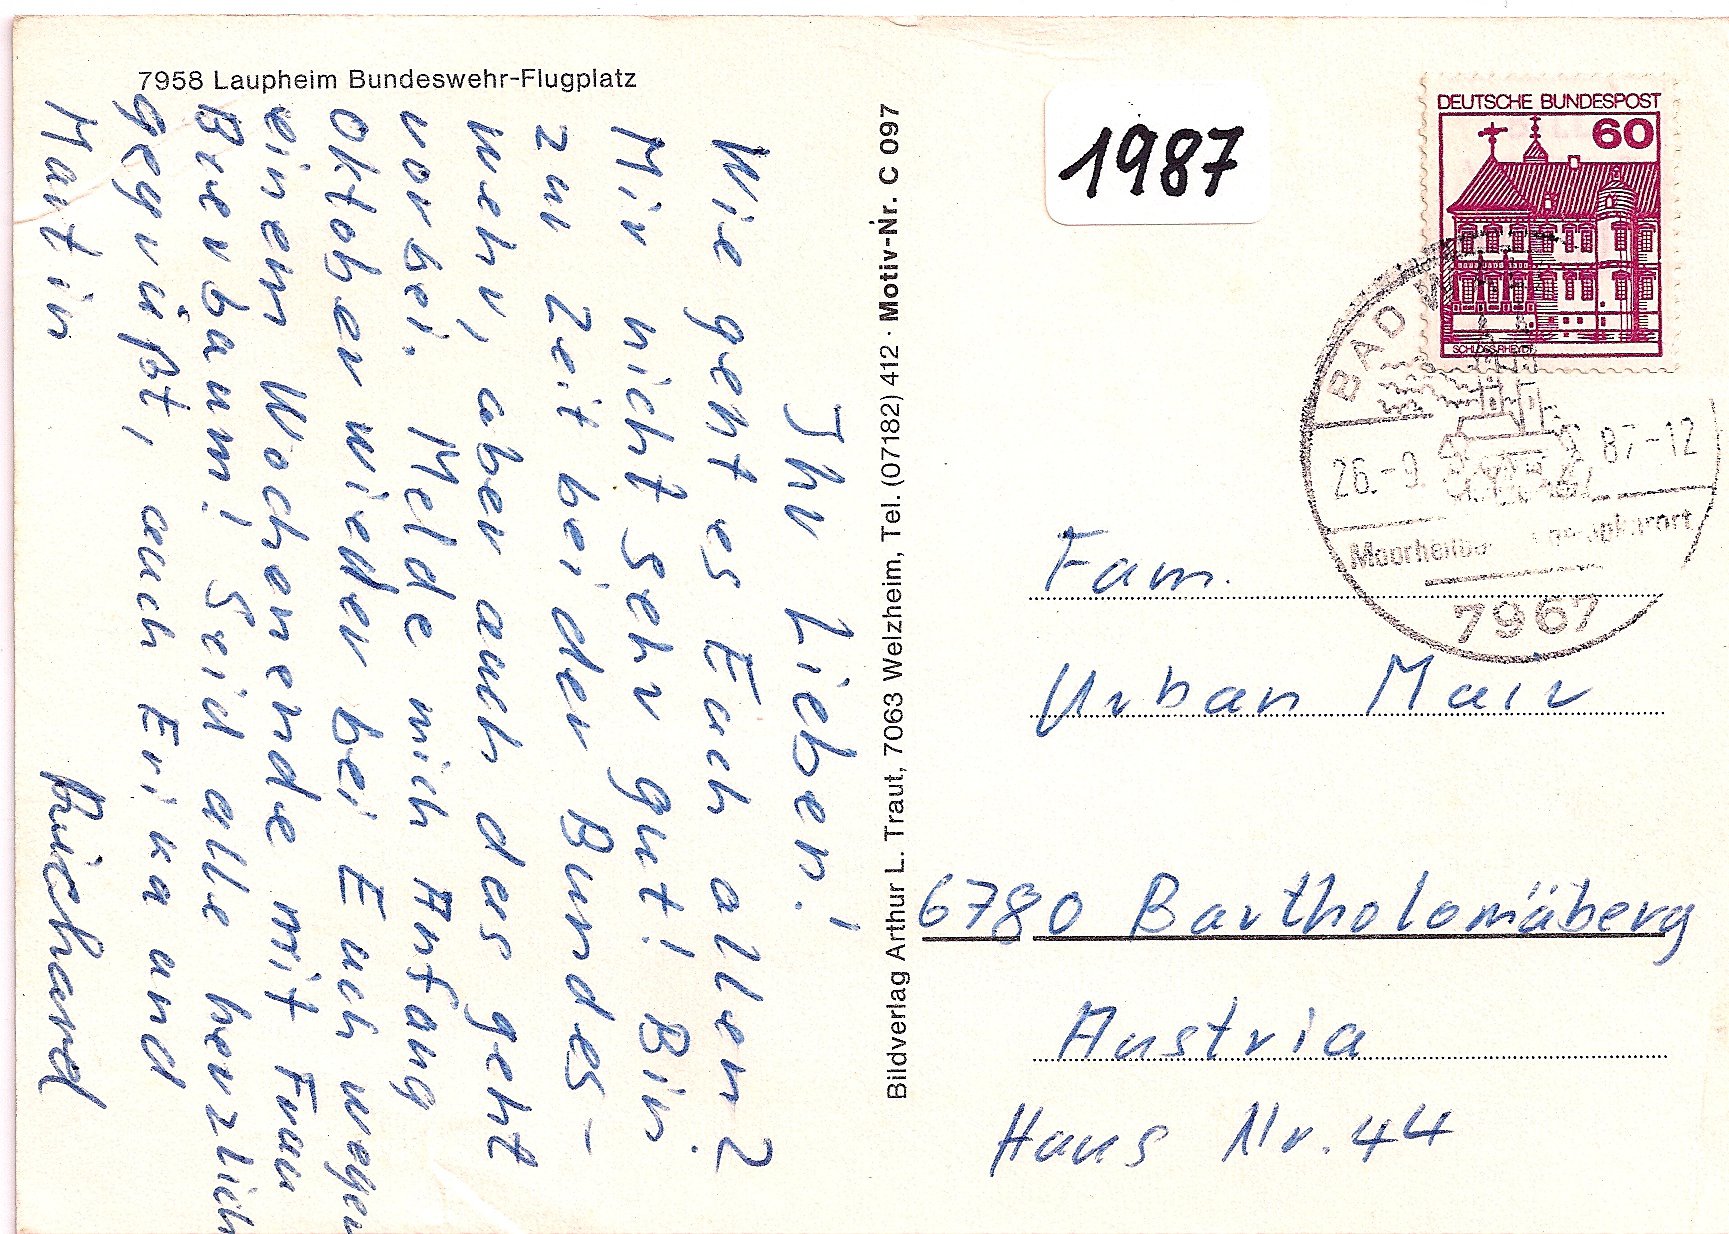 7958 Laupheim Bundeswehr-Flugplatz
Ihr Lieben!
Wie geht es Euch allen?
Mir nicht sehr gut! Bin
zur Zeit bei der Bundes-
wehr, aber auch das geht
vorbei. Melde mich Anfang
Oktober wieder bei Euch wegen
einem Wochenende mit Frau
Beerbaum! Seid alle herzlich
gegrüßt, auch Erika und
Martin
Richard
Bildverlag Arthur L. Traut, 7063 Welzheim, Tel. (07182) 412 · Motiv-Nr. C 097
1987
DEUTSCHE BUNDESPOST
60
SCHLOSS RHEYDT
BAD
26.-9. 87-12
7967
Fam.
Urban Mair
6780 Bartholomäberg
Austria
Haus Nr. 44